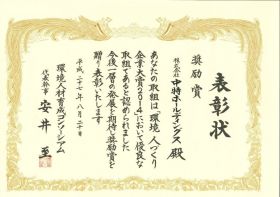 表彰状
奨励賞
株式会社
中特ホールディングス 殿
あなたの取組は「環境 人づくり
企業大賞2014」において優良な
取組であると認められました
今後一層の発展を期待し奨励賞を
贈り表彰いたします
平成二十七年八月二十日
環境人材育成コンソーシアム
代表幹事 安井 至